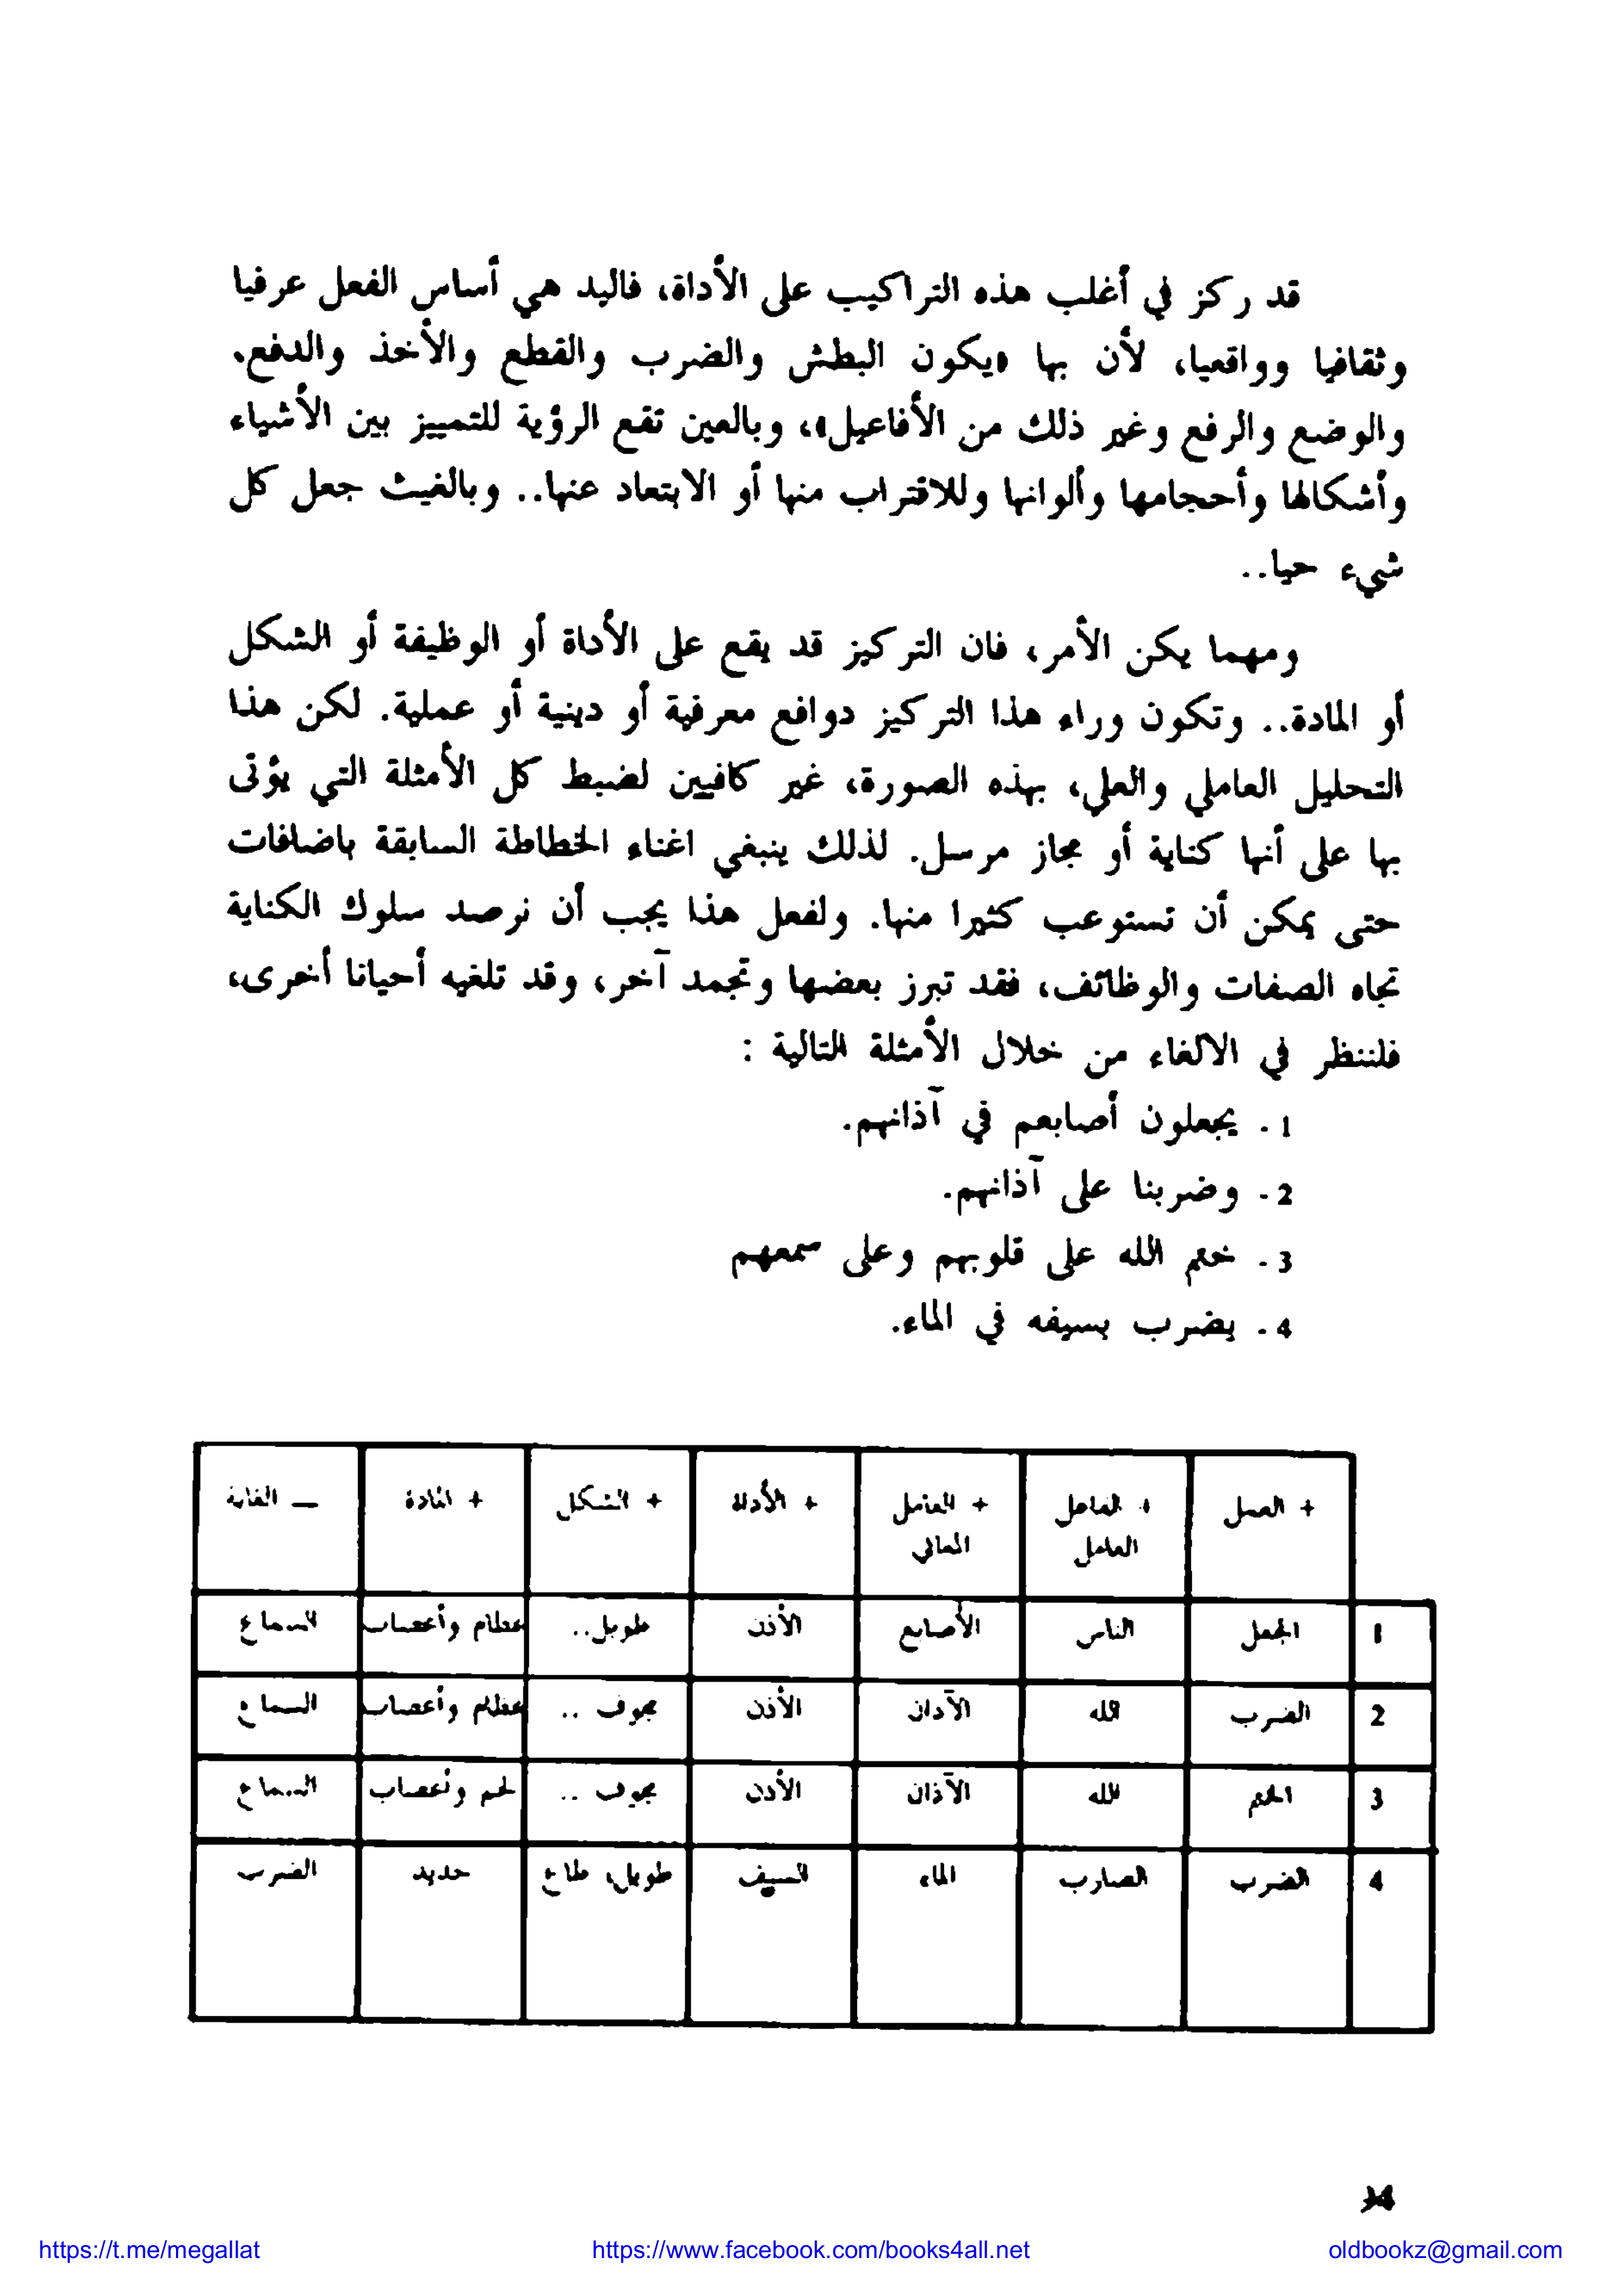 قد ركز في أغلب هذه التراكيب على الأداة، فاليد هي أساس الفعل عرفيا
وثقافيا وواقعيا، لأن بها «يكون البطش والضرب والقطع والأخذ والدفع،
والوضع والرفع وغير ذلك من الأفاعيل»، وبالعين تقع الرؤية للتمييز بين الأشياء
وأشكالها وأحجامها وألوانها وللاقتراب منها أو الابتعاد عنها.. وبالغيث جعل كل
شيء حيا..
ومهما يكن الأمر، فان التركيز قد يقع على الأداة أو الوظيفة أو الشكل
أو المادة.. وتكون وراء هذا التركيز دوافع معرفية أو دينية أو عملية. لكن هذا
التحليل العاملي والعلي، بهذه الصورة، غير كافيين لضبط كل الأمثلة التي يؤتى
بها على أنها كناية أو مجاز مرسل. لذلك ينبغي اغناء الخطاطة السابقة باضافات
حتى يمكن أن تستوعب كثيرا منها. ولفعل هذا يجب أن نرصد سلوك الكناية
تجاه الصفات والوظائف، فقد تبرز بعضها وتجمد آخر، وقد تلغيه أحيانا أخرى،
فلننظر في الالغاء من خلال الأمثلة التالية :
1 - يجعلون أصابعم في آذانهم.
2 - وضربنا على آذانهم.
3 - ختم الله على قلوبهم وعلى سمعهم
4 - يضرب بسيفه في الماء.
+ العمل + الفاعل العامل + العامل المعاني + الأداة + الشكل + المادة — الغاية
1 الجعل الناس الأصابع الأذن طويل.. عظام وأعصاب السماع
2 الضرب الله الآذان الأذن مجوف .. عظام وأعصاب السماع
3 الختم الله الآذان الأذن مجوف .. لحم وأعصاب السماع
4 الضرب الضارب الماء السيف طويل، حديد الضرب
https://t.me/megallat https://www.facebook.com/books4all.net oldbookz@gmail.com